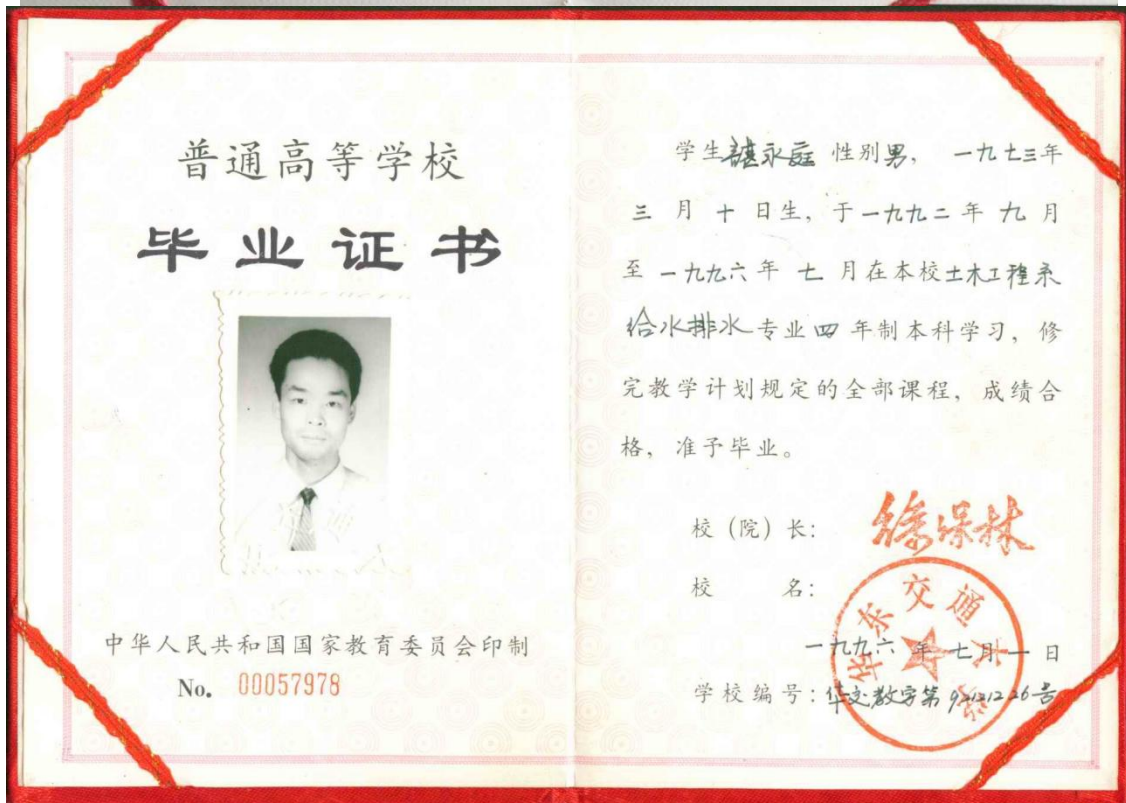 普通高等学校
毕业证书
中华人民共和国国家教育委员会印制
No. 00057978
学生 永庭 性别男， 一九七三年
三月十日生，于一九九二年九月
至一九九六年七月在本校土木工程系
给水排水专业四年制本科学习，修
完教学计划规定的全部课程，成绩合
格，准予毕业。
校（院）长： 徐保林
校 名：
华东交通大学
一九九六年七月一日
学校编号：华交教字第 号